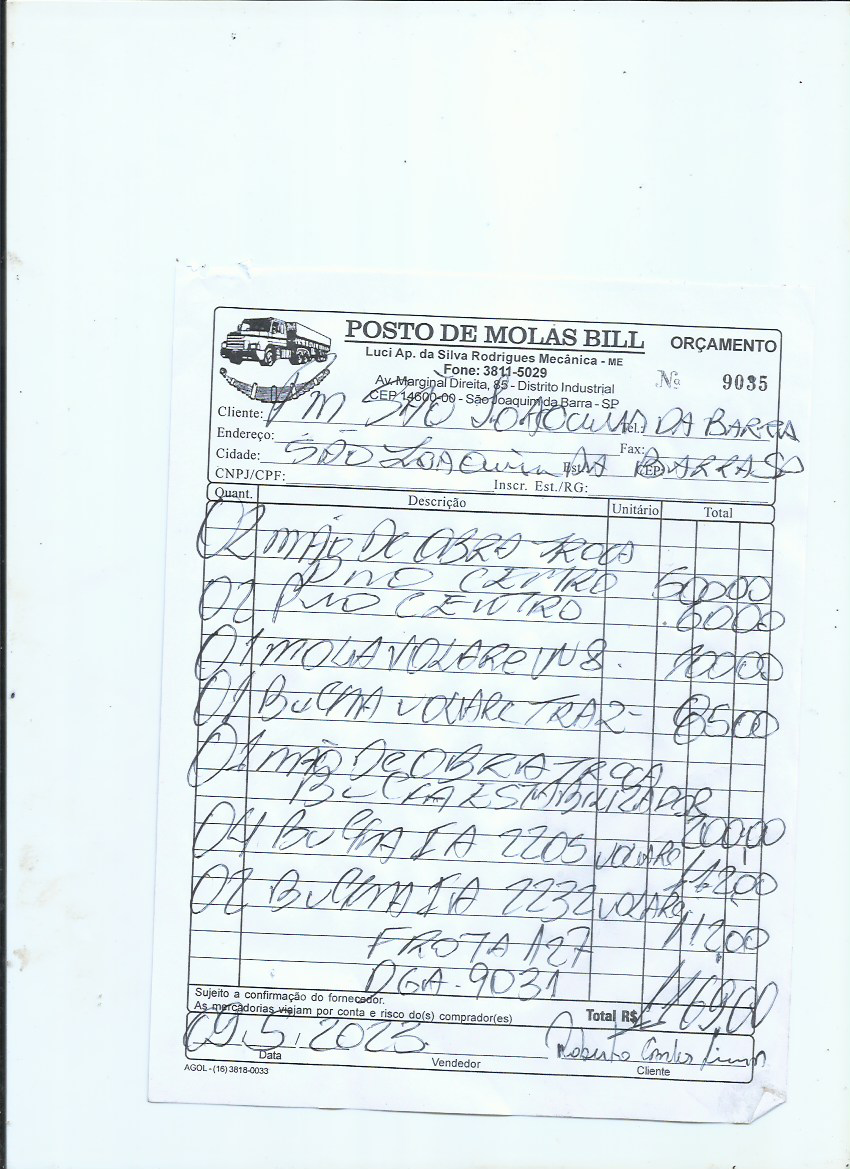 POSTO DE MOLAS BILL
ORÇAMENTO
Luci Ap. da Silva Rodrigues Mecânica - ME
Fone: 3811-5029
Av. Marginal Direita, 85 - Distrito Industrial
CEP 14600-00 - São Joaquim da Barra - SP
Nº 9035
Cliente: PM SÃO JOAQUIM DA BARRA Tel.:
Endereço: Fax:
Cidade: SÃO JOAQUIM DA BARRA SP Est.: CEP:
CNPJ/CPF: Inscr. Est./RG:
Quant. Descrição Unitário Total
02 MÃO DE OBRA TROCA
PINO CENTRO 50000
02 PINO CENTRO 6000
01 MOLA VOLARE W8. 10000
01 BUCHA VOLARE TRAZ- 8500
01 MÃO DE OBRA TROCA
BUCHA ESTABILIZADOR 20000
04 BUCHA IA 2205 VOLARE 11200
02 BUCHA IA 2232 VOLARE 11200
FROTA 127
DGA-9031
Sujeito a confirmação do fornecedor.
As mercadorias viajam por conta e risco do(s) comprador(es)
Total R$ 116900
09.5.2023
Roberto
Data Vendedor Cliente
AGOL - (16) 3818-0033